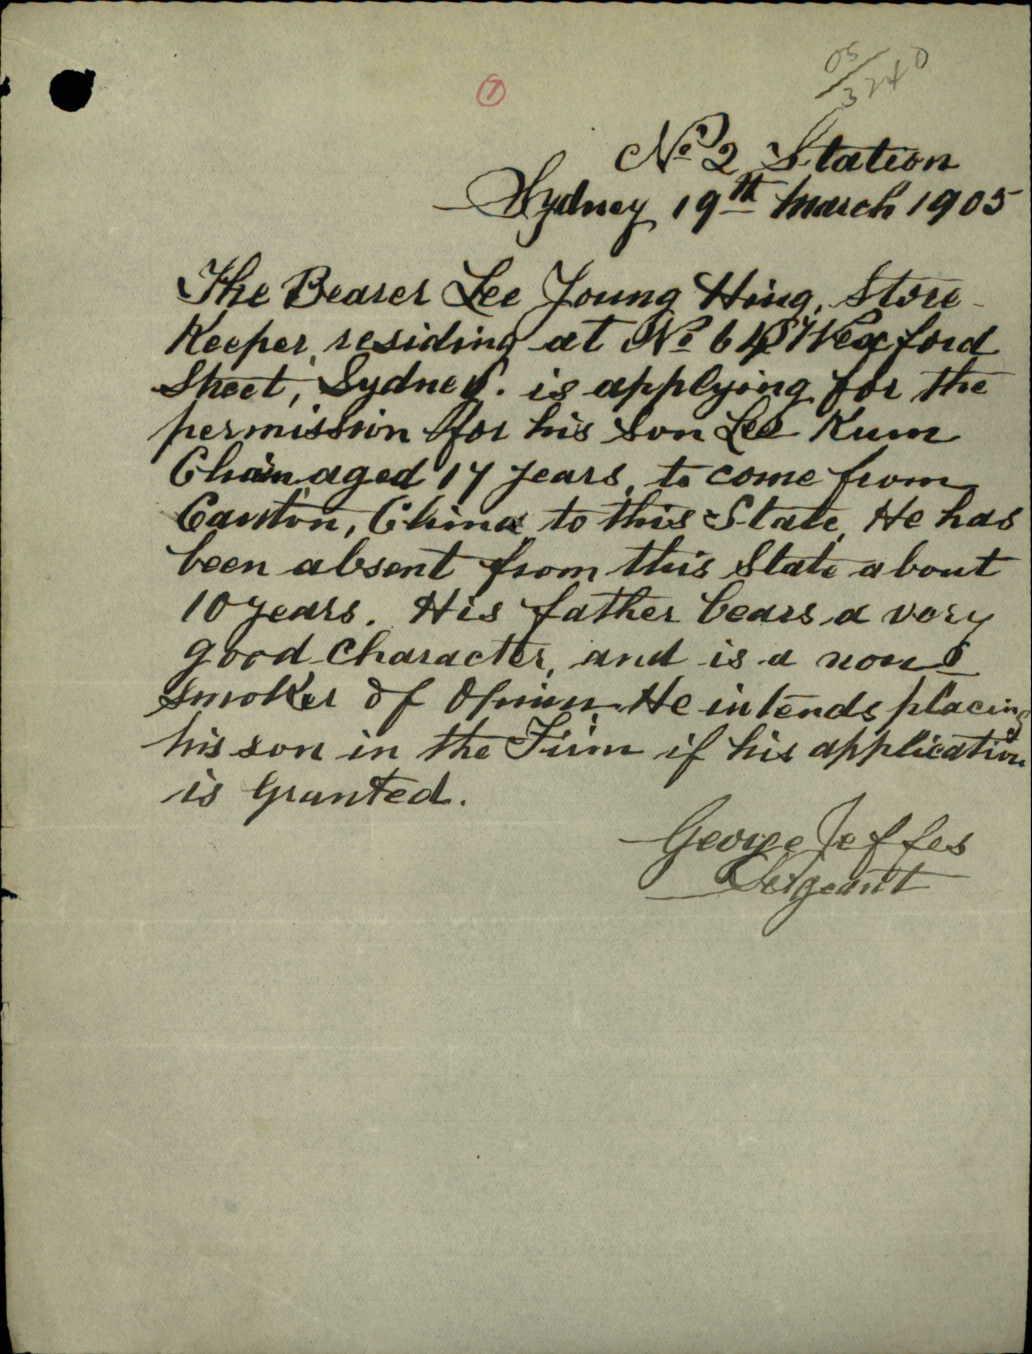 05/3240
7
No 2 Station
Sydney 19th March 1905
The Bearer Lee Young Hing, Store
Keeper, residing at No 64 Wexford
Street, Sydney. is applying for the
permission for his son Lee Kum
Chan, aged 17 years, to come from
Canton, China, to this State, He has
been absent from this State about
10 years. His father bears a very
good character, and is a non
smoker of Opium. He intends placing
his son in the Firm if his application
is granted.
George Jeffes
Sergeant